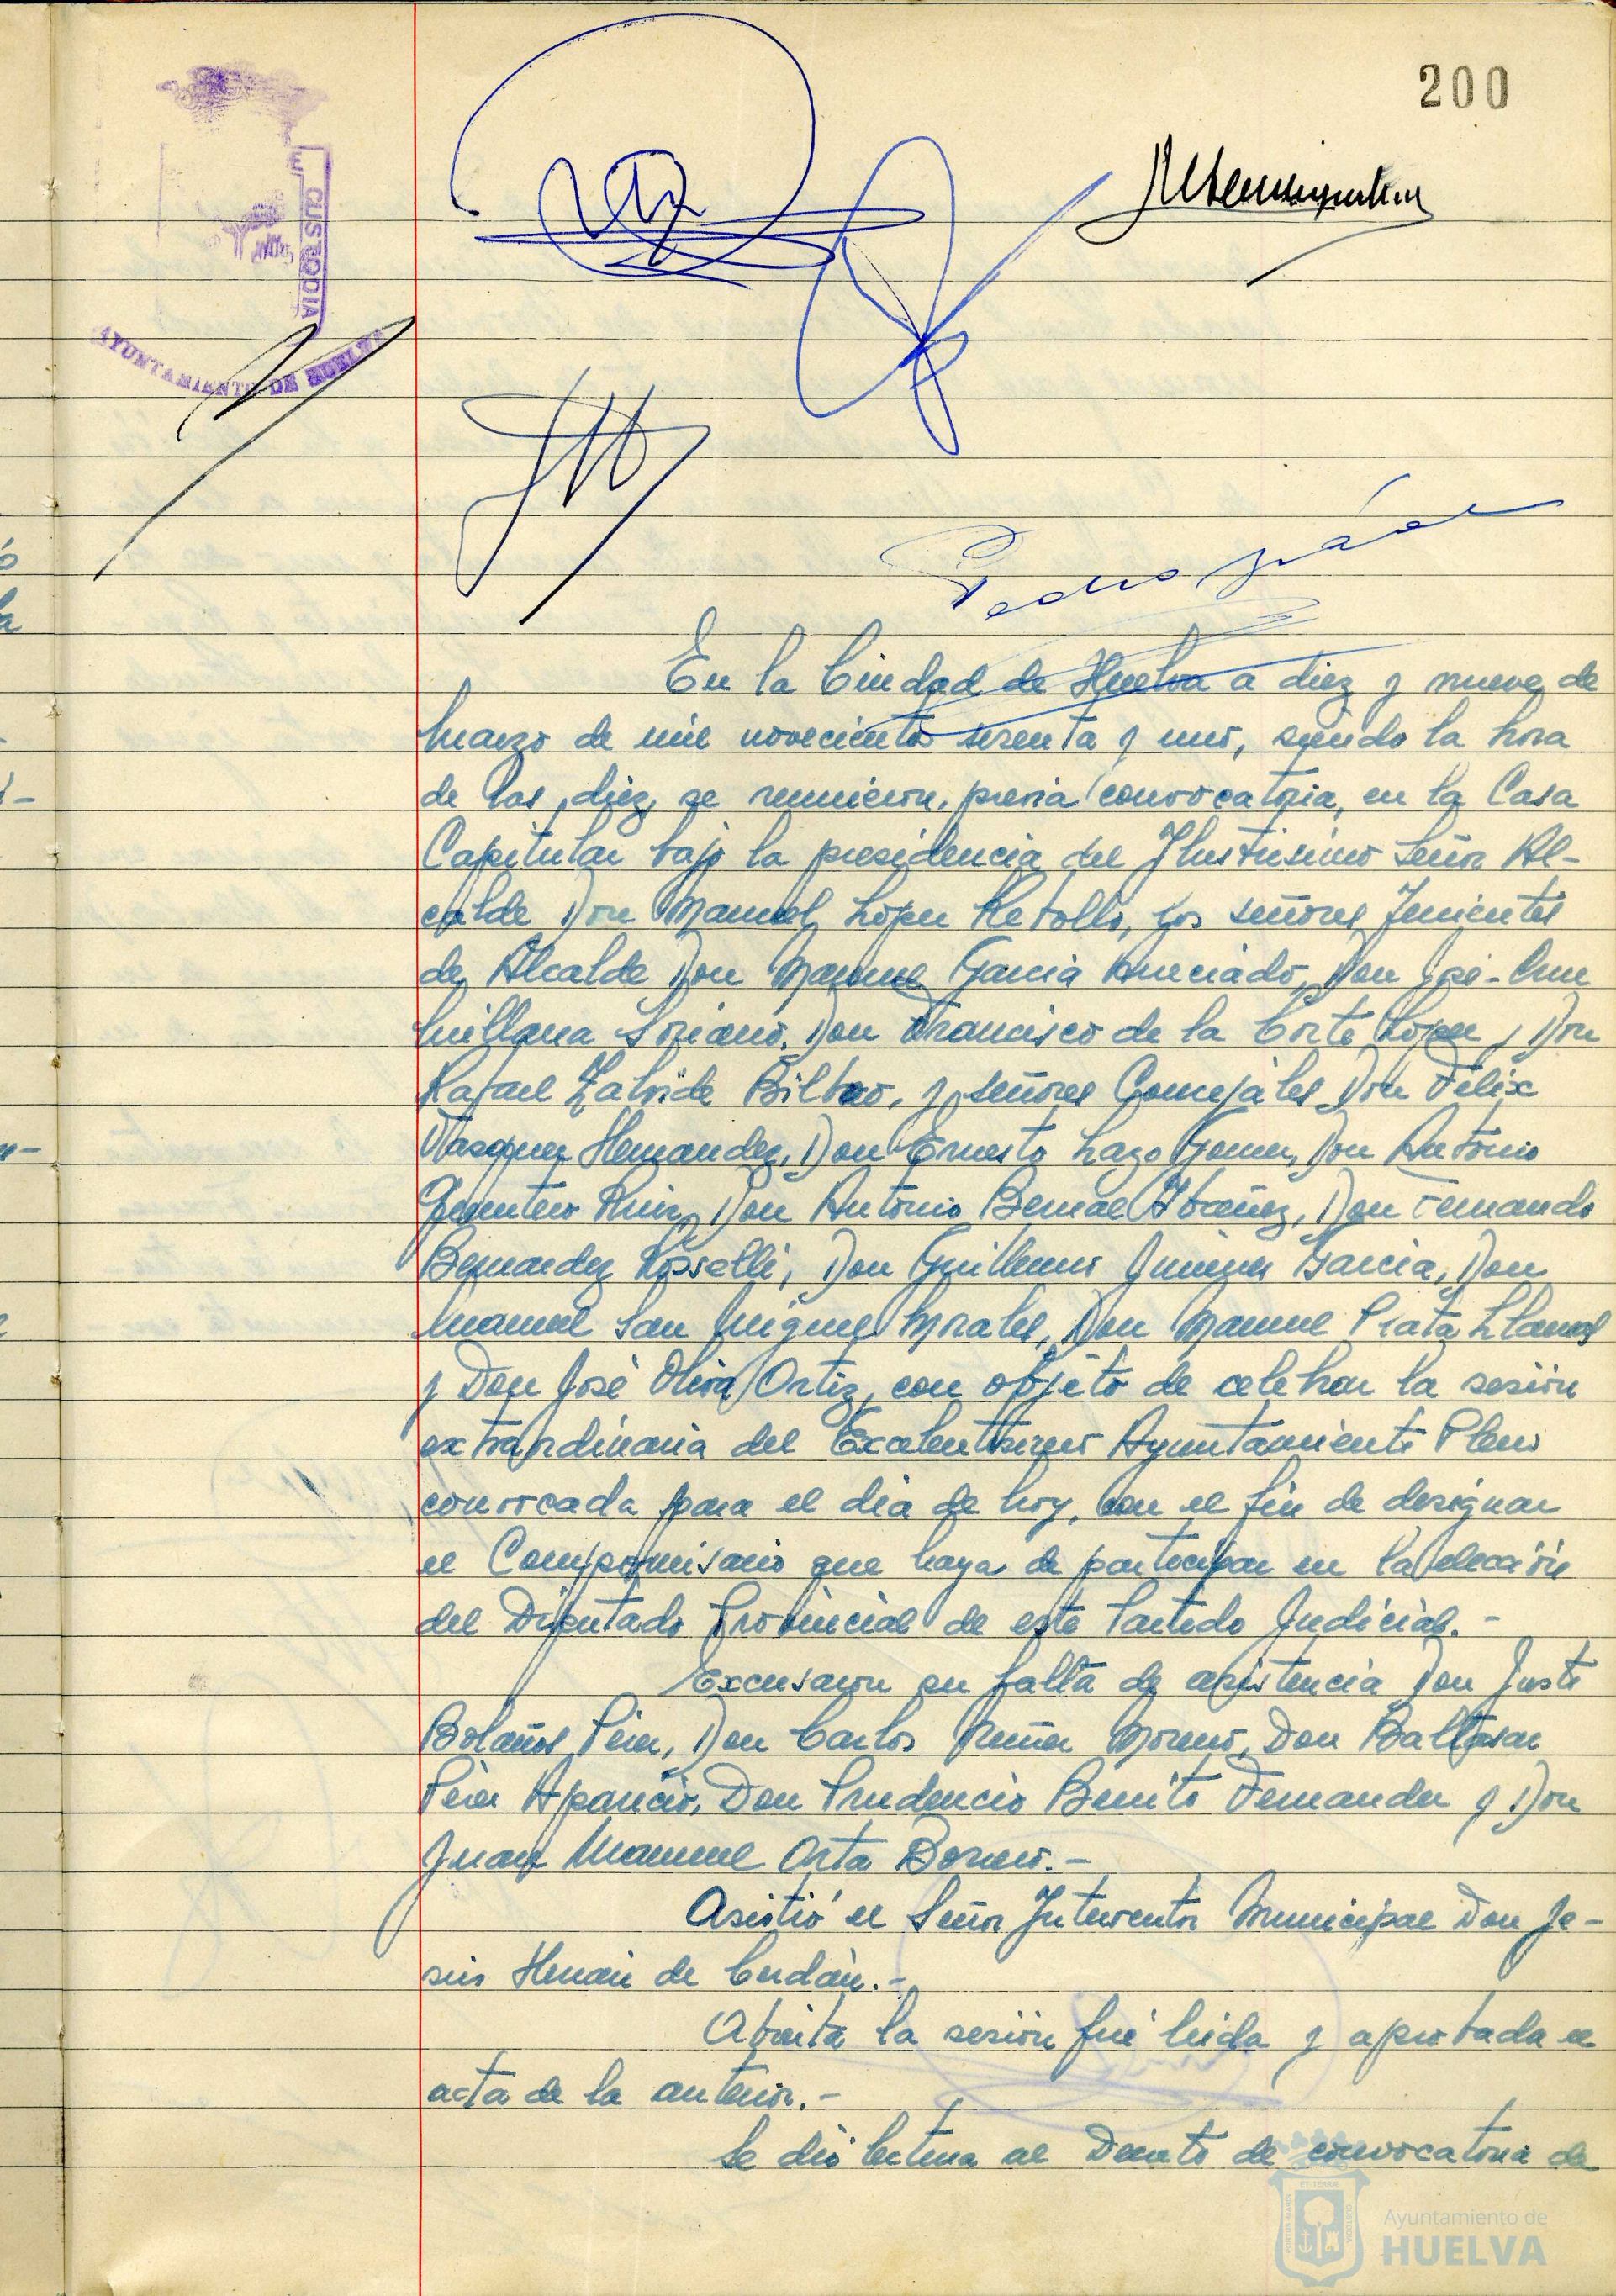 200
CUSTODIA
AYUNTAMIENTO DE HUELVA
En la Ciudad de Huelva a diez y nueve de
marzo de mil novecientos sesenta y uno, siendo la hora
de las diez, se reunieron, previa convocatoria, en la Casa
Capitular bajo la presidencia del Ilustrisimo Señor Al-
calde Don Manuel López Rebollo, los señores Tenientes
de Alcalde Don Manuel Garcia Don José-Luis
Millana Soriano, Don Francisco de la Corte López y Don
Rafael Zalvide Bilbao, y señores Concejales Don Félix
Vazquez Hernandez, Don Ernesto Lazo Gomez, Don Antonio
Quintero Ruiz, Don Antonio Bernal Ibañez, Don Fernando
Bernardez Rosselli, Don Guillermo Jimenez Garcia, Don
Manuel San Miguel Morales, Don Manuel Prata Llamas
y Don José Oliva Ortiz, con objeto de celebrar la sesión
extraordinaria del Excelentisimo Ayuntamiento Pleno
convocada para el dia de hoy, con el fin de designar
el Compromisario que haya de participar en la elección
del Diputado Provincial de este Partido Judicial.-
Excusaron su falta de asistencia Don Justo
Bolaños Pérez, Don Carlos Nuñez Moreno, Don Baltasar
Pérez Aparicio, Don Prudencio Benito Fernandez y Don
Juan Manuel Orta Borrero.-
Asistió el Señor Interventor Municipal Don Je-
sús Hernán de Cerdán.-
Abierta la sesión fué leida y aprobada el
acta de la anterior.-
Se dió lectura al Decreto de convocatoria de
Ayuntamiento de
HUELVA